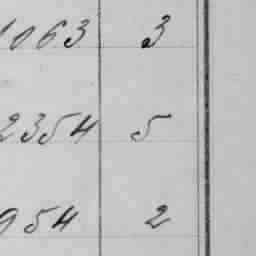 1063 3
2354 5
954 2